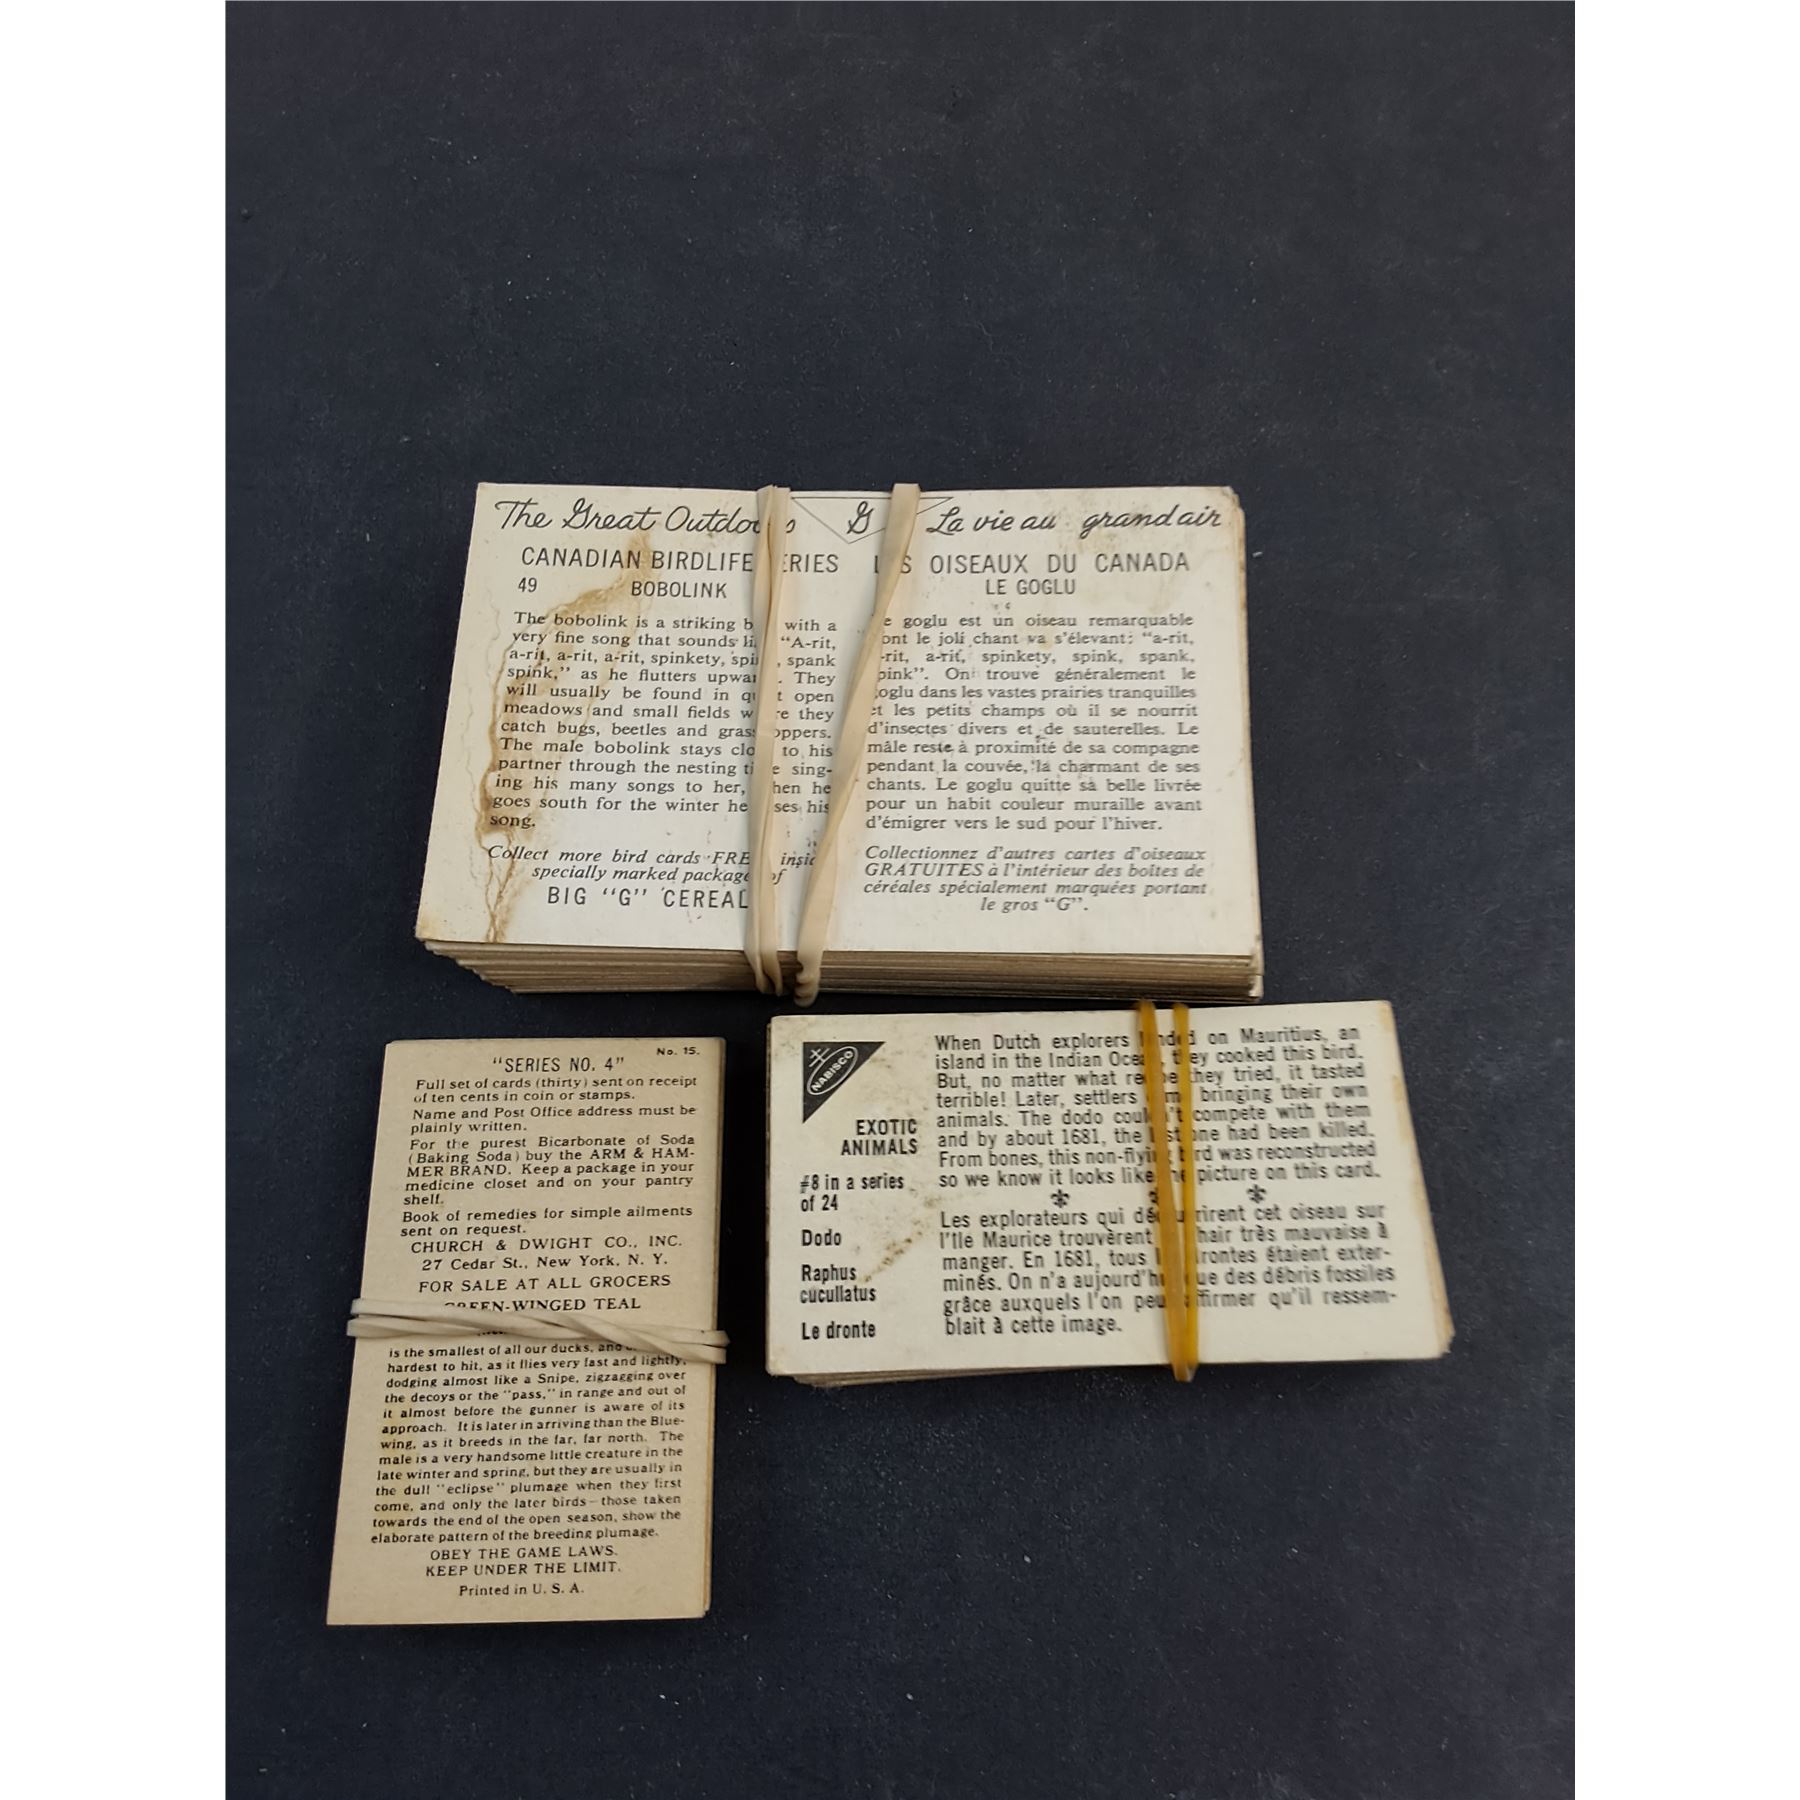 The Great Outdoo s G La vie au grand air
CANADIAN BIRDLIFE ERIES
49 BOBOLINK
The bobolink is a striking b with a
very fine song that sounds li "A-rit,
a-rit, a-rit, a-rit, spinkety, spi , spank
spink," as he flutters upwar . They
will usually be found in qu t open
meadows and small fields w re they
catch bugs, beetles and grass oppers.
The male bobolink stays clo to his
partner through the nesting ti e sing-
ing his many songs to her, hen he
goes south for the winter he ses his
song.
Collect more bird cards FREE insid
specially marked package of
BIG "G" CEREAL
L S OISEAUX DU CANADA
LE GOGLU
e goglu est un oiseau remarquable
ont le joli chant va s'élevant: "a-rit,
-rit, a-rit, spinkety, spink, spank,
pink". On trouve généralement le
oglu dans les vastes prairies tranquilles
et les petits champs où il se nourrit
d'insectes divers et de sauterelles. Le
mâle reste à proximité de sa compagne
pendant la couvée, la charmant de ses
chants. Le goglu quitte sa belle livrée
pour un habit couleur muraille avant
d'émigrer vers le sud pour l'hiver.
Collectionnez d'autres cartes d'oiseaux
GRATUITES à l'intérieur des boîtes de
céréales spécialement marquées portant
le gros "G".
No. 15.
"SERIES NO. 4"
Full set of cards (thirty) sent on receipt
of ten cents in coin or stamps.
Name and Post Office address must be
plainly written.
For the purest Bicarbonate of Soda
(Baking Soda) buy the ARM & HAM-
MER BRAND. Keep a package in your
medicine closet and on your pantry
shelf.
Book of remedies for simple ailments
sent on request.
CHURCH & DWIGHT CO., INC.
27 Cedar St., New York, N. Y.
FOR SALE AT ALL GROCERS
GREEN-WINGED TEAL
is the smallest of all our ducks, and
hardest to hit, as it flies very fast and lightly,
dodging almost like a Snipe, zigzagging over
the decoys or the "pass," in range and out of
it almost before the gunner is aware of its
approach. It is later in arriving than the Blue-
wing, as it breeds in the far, far north. The
male is a very handsome little creature in the
late winter and spring, but they are usually in
the dull "eclipse" plumage when they first
come, and only the later birds—those taken
towards the end of the open season, show the
elaborate pattern of the breeding plumage.
OBEY THE GAME LAWS.
KEEP UNDER THE LIMIT.
Printed in U. S. A.
NABISCO
EXOTIC
ANIMALS
#8 in a series
of 24
Dodo
Raphus
cucullatus
Le dronte
When Dutch explorers landed on Mauritius, an
island in the Indian Ocean, they cooked this bird.
But, no matter what re pe they tried, it tasted
terrible! Later, settlers came bringing their own
animals. The dodo couldn't compete with them
and by about 1681, the last one had been killed.
From bones, this non-flying bird was reconstructed
so we know it looks like the picture on this card.
Les explorateurs qui découvrirent cet oiseau sur
l'Ile Maurice trouvèrent hair très mauvaise à
manger. En 1681, tous l drontes étaient exter-
minés. On n'a aujourd'hui que des débris fossiles
grâce auxquels l'on peut affirmer qu'il ressem-
blait à cette image.